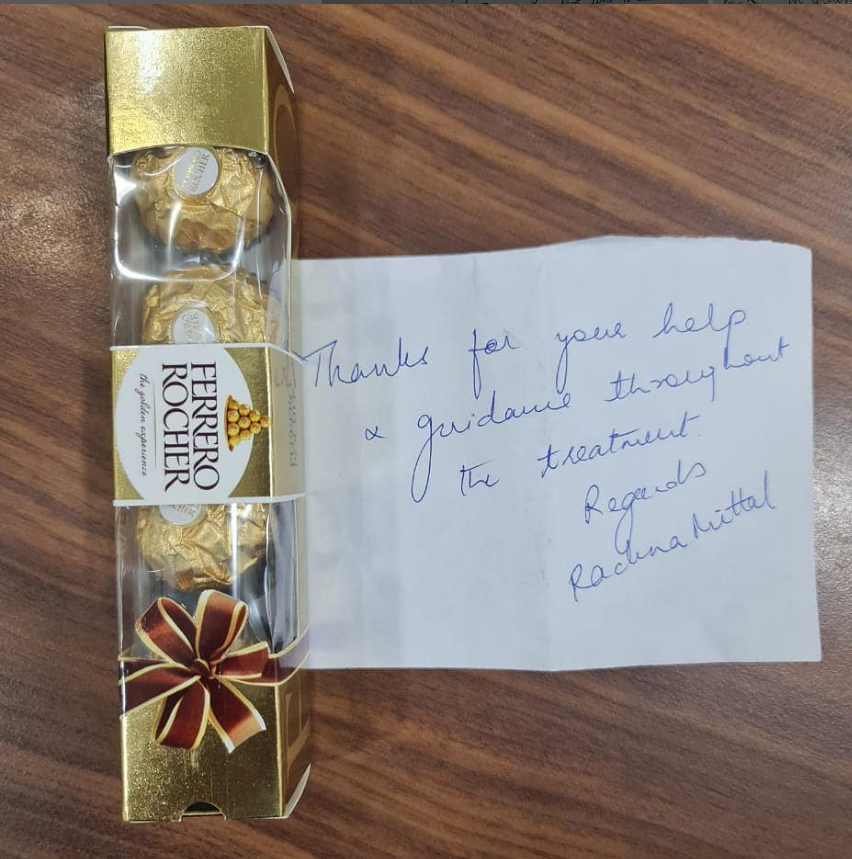 FERRERO
ROCHER
the golden experience
Thanks for your help
& guidance throughout
the treatment.
Regards
Rachna Mittal